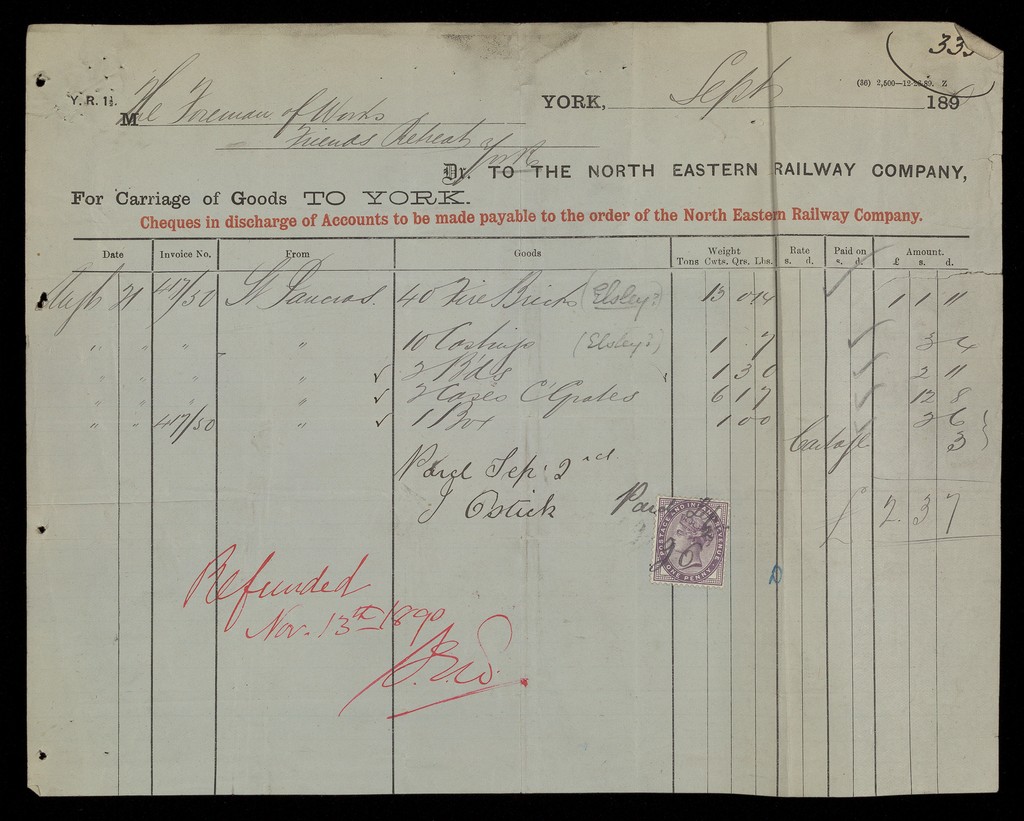 335
(36) 2,500—12-26-89. Z
Y. R. 1½. YORK, Sept 1890
M The Foreman of Works
Friends Retreat York
Dr. TO THE NORTH EASTERN RAILWAY COMPANY,
For Carriage of Goods TO YORK.
Cheques in discharge of Accounts to be made payable to the order of the North Eastern Railway Company.
Date Invoice No. From Goods Weight Rate Paid on Amount.
Tons Cwts. Qrs. Lbs. s. d. s. d. £ s. d.
Augt 21 417/50 St Pancras. 40 Fire Bricks (Elsley?) 13 0 14 1 1 11
" " " " 10 Castings (Elsley?) 1 7 3 4
" " " " 2 Bdls 1 3 0 2 11
" " " " 2 Cases C' Grates 6 1 7 12 8
" " 417/50 " 1 Box 1 0 0 2 6
Cartage 3
Paid Sep. 2nd.
J Ostick Paid
£ 2. 3 7
POSTAGE AND INLAND REVENUE
ONE PENNY
Refunded
Nov. 13th 1890